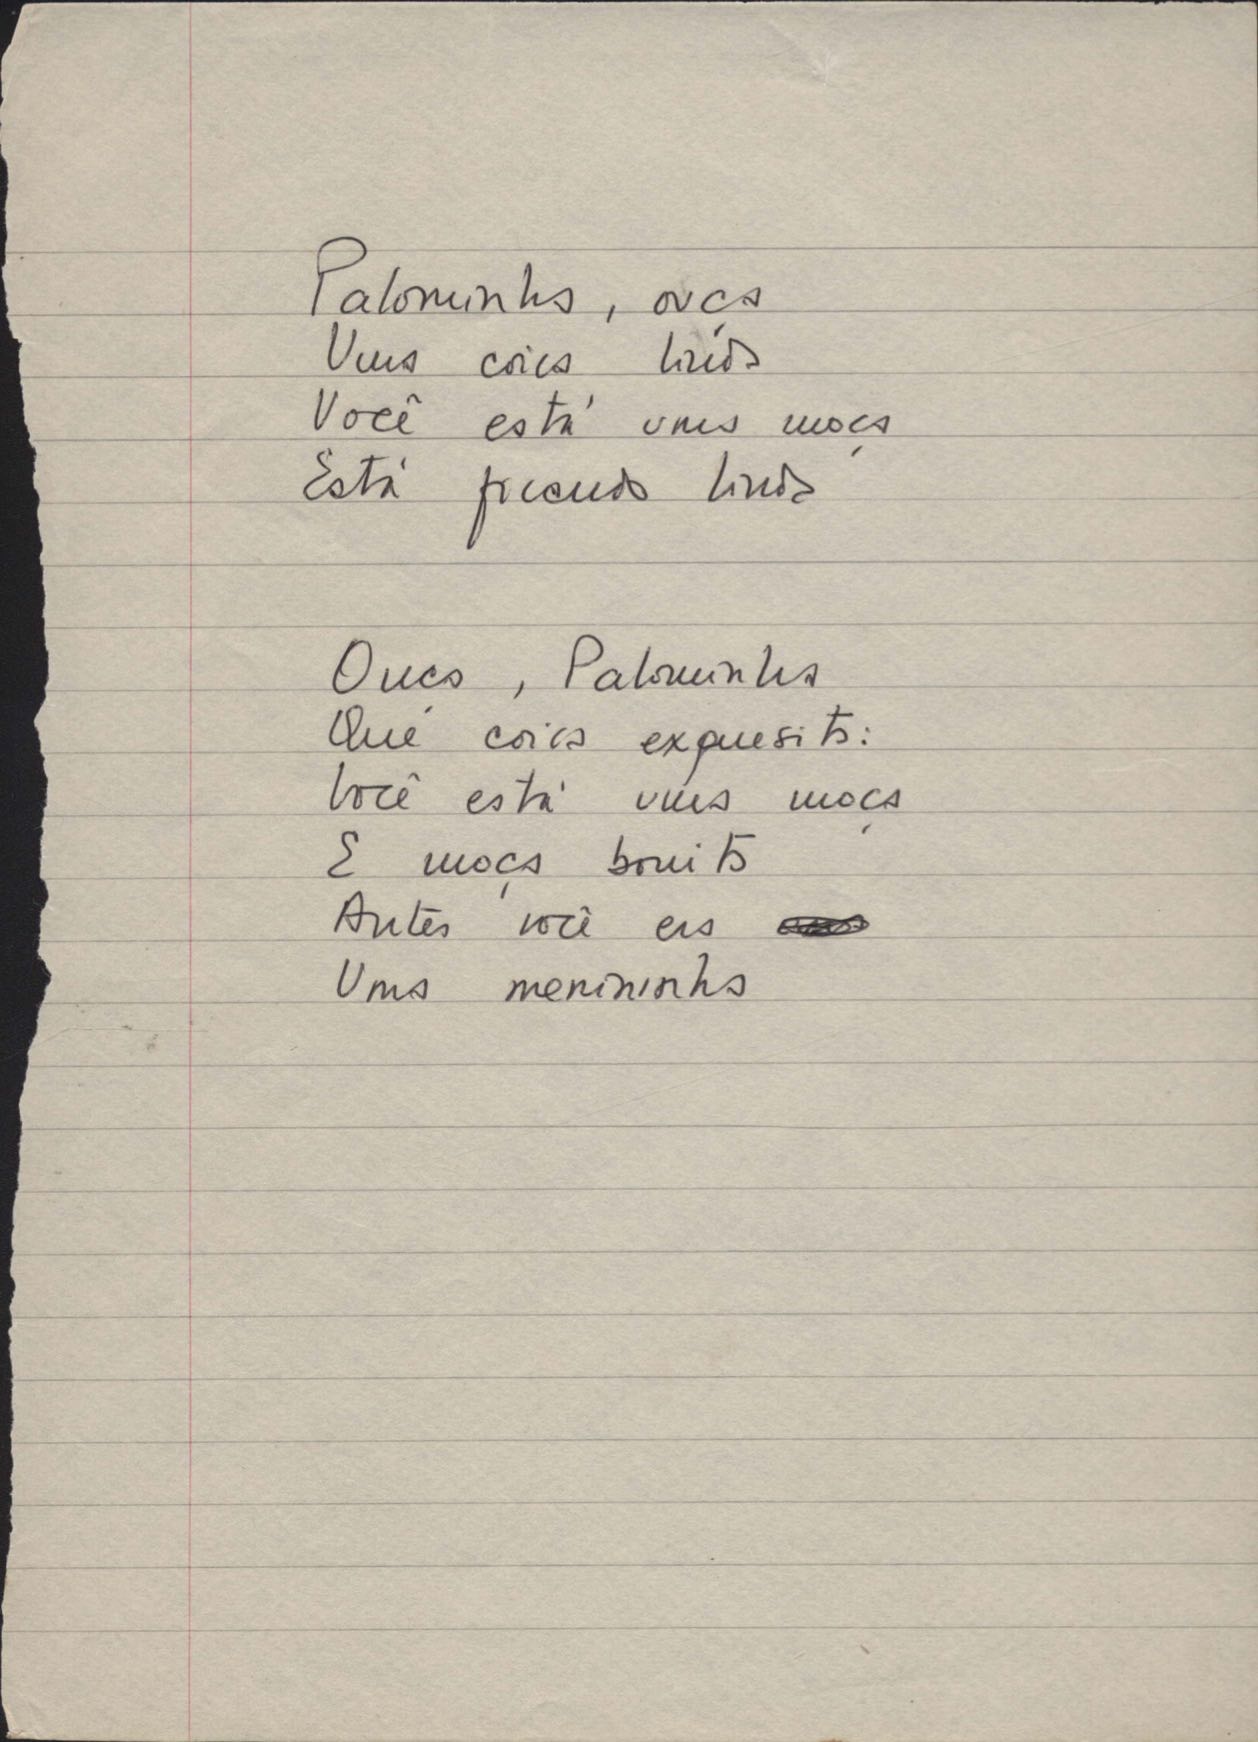 Palominha, ouça
Uma coisa linda
Você está uma moça
Está ficando linda
Ouça, Palominha
Que coisa exquesita:
Você está uma moça
E moça bonita
Antes você era
Uma menininha